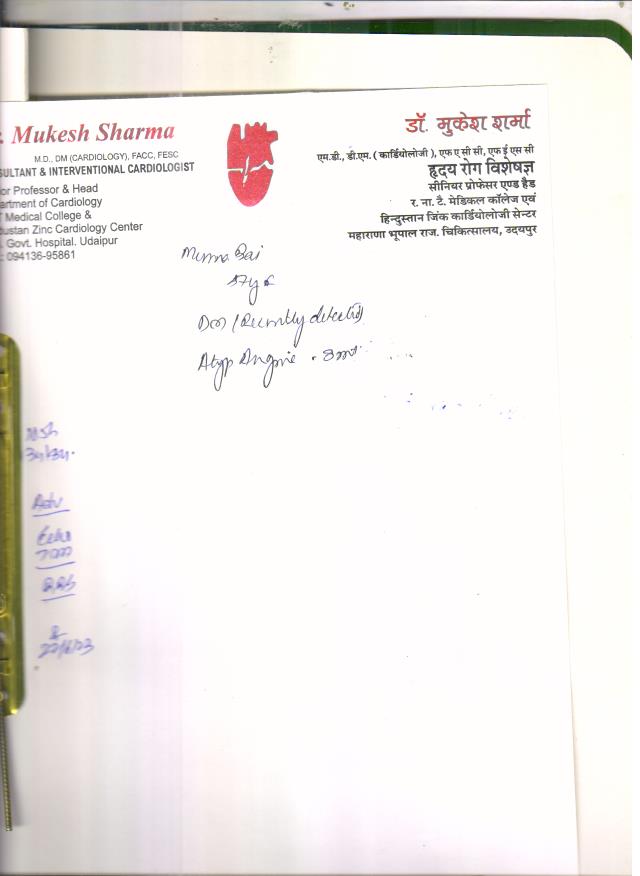 Mukesh Sharma
M.D., DM (CARDIOLOGY), FACC, FESC
SULTANT & INTERVENTIONAL CARDIOLOGIST
or Professor & Head
artment of Cardiology
Medical College &
ustan Zinc Cardiology Center
Govt. Hospital. Udaipur
: 094136-95861
डॉ. मुकेश शर्मा
एम.डी., डी.एम. ( कार्डियोलोजी ), एफ ए सी सी, एफ ई एस सी
हृदय रोग विशेषज्ञ
सीनियर प्रोफेसर एण्ड हैड
र. ना. टै. मेडिकल कॉलेज एवं
हिन्दुस्तान जिंक कार्डियोलोजी सेन्टर
महाराणा भूपाल राज. चिकित्सालय, उदयपुर
Bai
DM (Recently detected)
Atyp Angine
Adv
Echo
RBS